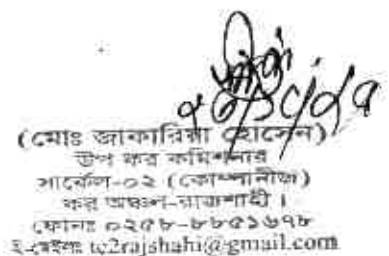 (মোঃ জাকারিয়া হোসেন)
উপ কর কমিশনার
সার্কেল-০২ (কোম্পানীজ)
কর অঞ্চল-রাজশাহী ।
ফোনঃ ০২৫৮-৮৮৫১৬৭৮
ই-মেইলঃ tc2rajshahi@gmail.com